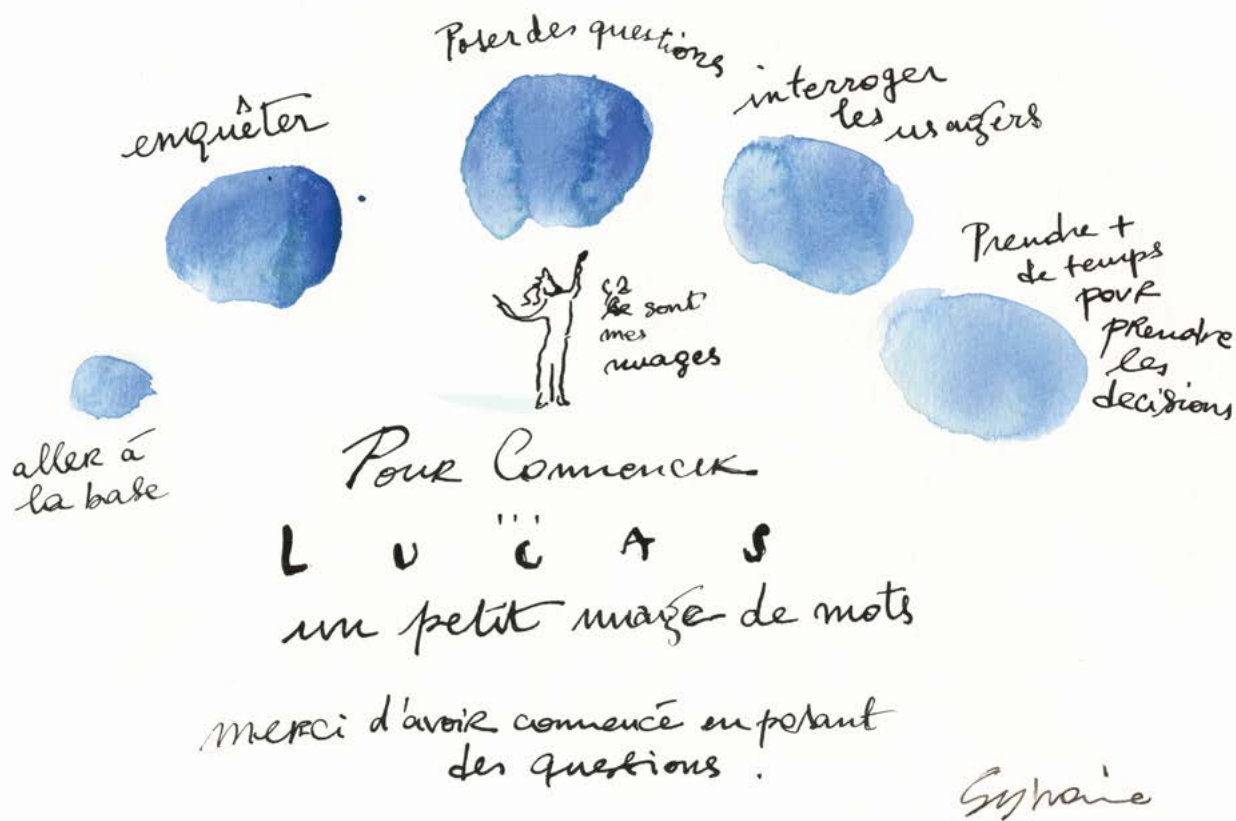 Poser des questions
enquêter
interroger
les usagers
Prendre +
de temps
pour
prendre
les
decisions
ça
ce sont
mes
nuages
aller à
la base
Pour Commencer
LUCAS
un petit nuage de mots
merci d'avoir commencé en posant
des questions.
Sylvaine